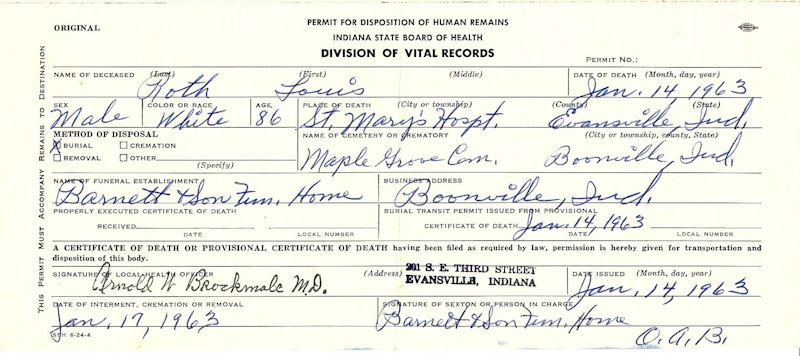 ORIGINAL
PERMIT FOR DISPOSITION OF HUMAN REMAINS
INDIANA STATE BOARD OF HEALTH
DIVISION OF VITAL RECORDS
PERMIT NO.:
THIS PERMIT MUST ACCOMPANY REMAINS TO DESTINATION
NAME OF DECEASED (Last) (First) (Middle) DATE OF DEATH (Month, day, year)
Roth Louis Jan. 14, 1963
SEX COLOR OR RACE AGE PLACE OF DEATH (City or township) (County) (State)
Male White 86 St. Mary's Hospt. Evansville, Ind.
METHOD OF DISPOSAL NAME OF CEMETERY OR CREMATORY (City or township, county, State)
X BURIAL CREMATION
REMOVAL OTHER Maple Grove Cem. Boonville, Ind.
(Specify)
NAME OF FUNERAL ESTABLISHMENT BUSINESS ADDRESS
Barnett & Son Fun. Home Boonville, Ind.
PROPERLY EXECUTED CERTIFICATE OF DEATH BURIAL TRANSIT PERMIT ISSUED FROM PROVISIONAL
RECEIVED CERTIFICATE OF DEATH Jan. 14, 1963
DATE LOCAL NUMBER DATE LOCAL NUMBER
A CERTIFICATE OF DEATH OR PROVISIONAL CERTIFICATE OF DEATH having been filed as required by law, permission is hereby given for transportation and
disposition of this body.
SIGNATURE OF LOCAL HEALTH OFFICER (Address) 201 S. E. THIRD STREET DATE ISSUED (Month, day, year)
Arnold W Brockmole M.D. EVANSVILLE, INDIANA Jan. 14, 1963
DATE OF INTERMENT, CREMATION OR REMOVAL SIGNATURE OF SEXTON OR PERSON IN CHARGE
Jan. 17, 1963 Barnett & Son Fun. Home
SBH 6-24-4 O.A.B.